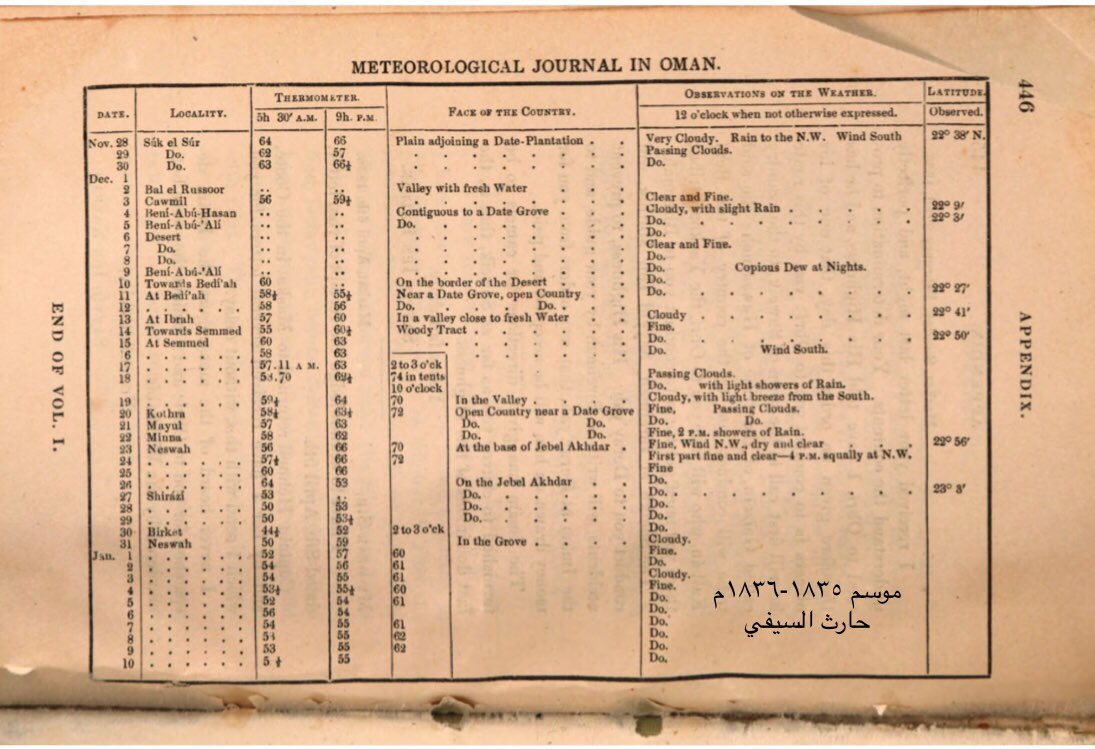 METEOROLOGICAL JOURNAL IN OMAN.
446
DATE. LOCALITY. THERMOMETER. FACE OF THE COUNTRY. OBSERVATIONS ON THE WEATHER. LATITUDE.
5h 30′ A.M. 9h. P.M. 12 o'clock when not otherwise expressed. Observed.
Nov. 28 Súk el Súr 64 66 Plain adjoining a Date-Plantation . . Very Cloudy. Rain to the N.W. Wind South 22° 38′ N.
29 Do. 62 57 . . . . . . Passing Clouds.
30 Do. 63 66½ . . . . . . Do.
Dec. 1
2 Bal el Russoor .. .. Valley with fresh Water . . . Clear and Fine.
3 Cawmil 56 59½ . . . . . . Cloudy, with slight Rain . . . . 22° 9′
4 Bení-Abú-Hasan .. .. Contiguous to a Date Grove . . . Do. . . . . . . . 22° 3′
5 Bení-Abú-'Alí .. .. Do. . . . . . . Do.
6 Desert .. .. . . . . . . Clear and Fine.
7 Do. .. .. . . . . . . Do.
8 Do. .. .. . . . . . . Do. Copious Dew at Nights.
9 Bení-Abú-'Alí .. .. . . . . . . Do.
10 Towards Bedí'ah 60 On the border of the Desert . . . Do. . . . . . . . 22° 27′
11 At Bedí'ah 58½ 55½ Near a Date Grove, open Country . .
12 . . . . . 58 56 Do. Do. . .
13 At Ibrah 57 60 In a valley close to fresh Water . . Cloudy . . . . . . . 22° 41′
14 Towards Semmed 55 60½ Woody Tract . . . . . Fine.
15 At Semmed 60 63 . . . . . . Do. . . . . . . . 22° 50′
6 . . . . . 58 63 Do. Wind South.
17 . . . . . 57.11 A M. 63 2 to 3 o'ck
18 . . . . . 53.70 62½ 74 in tents Passing Clouds.
10 o'clock Do. with light showers of Rain.
19 . . . . . 59½ 64 70 In the Valley . . . . Cloudy, with light breeze from the South.
20 Kothra 58½ 63½ 72 Open Country near a Date Grove Fine, Passing Clouds.
21 Mayul 57 63 Do. Do. Do. Do.
22 Minna 58 62 Do. Do. Fine, 2 P.M. showers of Rain.
23 Neswah 56 66 70 At the base of Jebel Akhdar . . Fine, Wind N.W., dry and clear . . . 22° 56′
24 . . . . . 57½ 66 72 First part fine and clear—4 P.M. squally at N.W.
25 . . . . . 60 66 Fine
26 . . . . . 64 53 On the Jebel Akhdar . . . Do.
27 Shirázi 53 .. Do. . . . . . Do. . . . . . . . 23° 3′
28 . . . . . 50 53 Do. . . . . . Do.
29 . . . . . 50 53½ Do. . . . . . Do.
30 Birket 44½ 52 2 to 3 o'ck Do.
31 Neswah 50 59 In the Grove . . . . Cloudy.
Jan. 1 . . . . . 52 57 60 Fine.
2 . . . . . 54 56 61 Do.
3 . . . . . 54 55 61 Cloudy.
4 . . . . . 53½ 55½ 60 Fine.
5 . . . . . 52 54 61 Do.
6 . . . . . 56 54 Do.
7 . . . . . 54 55 61 Do.
8 . . . . . 55 62 Do.
9 . . . . . 53 55 62 Do.
10 . . . . . 55 Do.
END OF VOL. I.
APPENDIX.
موسم ١٨٣٥-١٨٣٦م
حارث السيفي